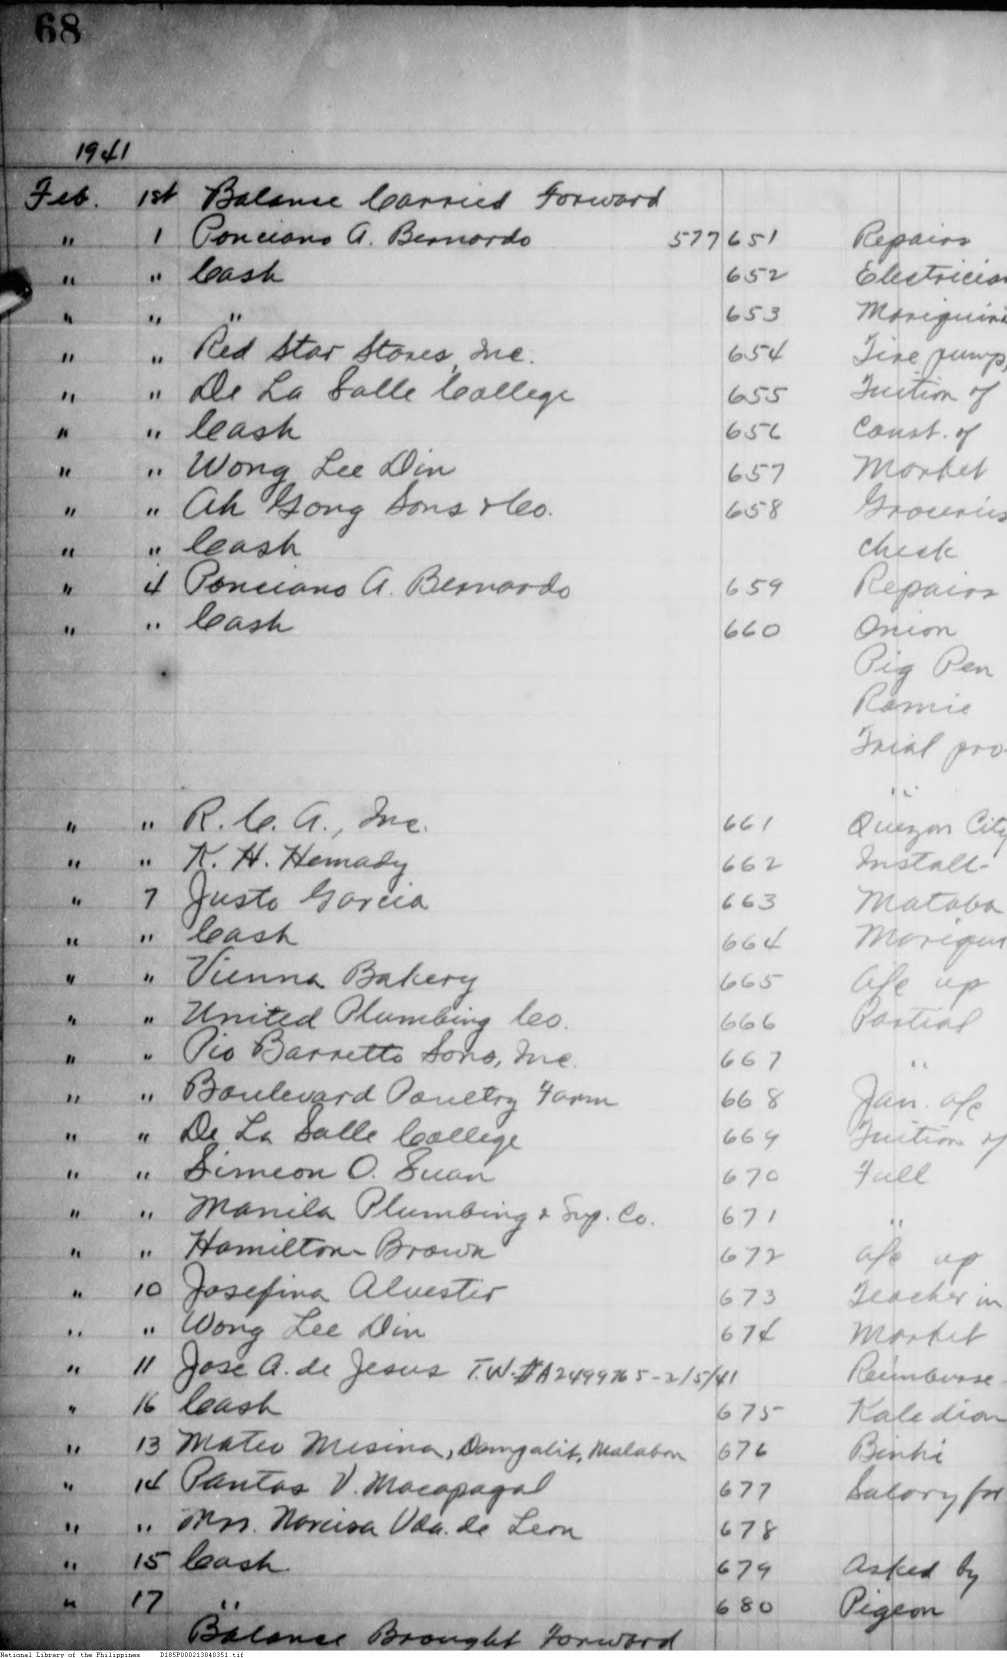 68
1941
Feb. 1st Balance Carried Forward
" 1 Ponciano A. Bernardo 577 651 Repairs
" " Cash 652 Electrician
" " " 653 Mariquina
" " Red Star Stores, Inc. 654 Tire pump,
" " De La Salle College 655 Tuition of
" " Cash 656 Const. of
" " Wong Lee Din 657 Market
" " Ah Gong Sons & Co. 658 Groceries
" " Cash check
" 4 Ponciano A. Bernardo 659 Repairs
" " Cash 660 Onion
Pig Pen
Ramie
Trial pro-
"
" " R. C. A., Inc. 661 Quezon City
" " K. H. Hemady 662 Install-
" 7 Justo Garcia 663 Mataba
" " Cash 664 Mariquin
" " Vienna Bakery 665 a/c up
" " United Plumbing Co. 666 Partial
" " Pio Barretto Sons, Inc. 667 "
" " Boulevard Poultry Farm 668 Jan. a/c
" " De La Salle College 669 Tuition of
" " Simeon O. Suan 670 Full
" " Manila Plumbing & Sup. Co. 671 "
" " Hamilton-Brown 672 a/c up
" 10 Josefina Alvester 673 Teacher in
" " Wong Lee Din 674 Market
" 11 Jose A. de Jesus T.W.#A2499765-2/5/41 Reimburse-
" 16 Cash 675 Kaledian
" 13 Mateo Misina, Dampalit, Malabon 676 Binhi
" 14 Pantas V. Macapagal 677 Salary for
" " Mrs. Narcisa Vda. de Leon 678
" 15 Cash 679 Asked by
" 17 " 680 Pigeon
Balance Brought Forward
National Library of the Philippines D185P000213040351.tif